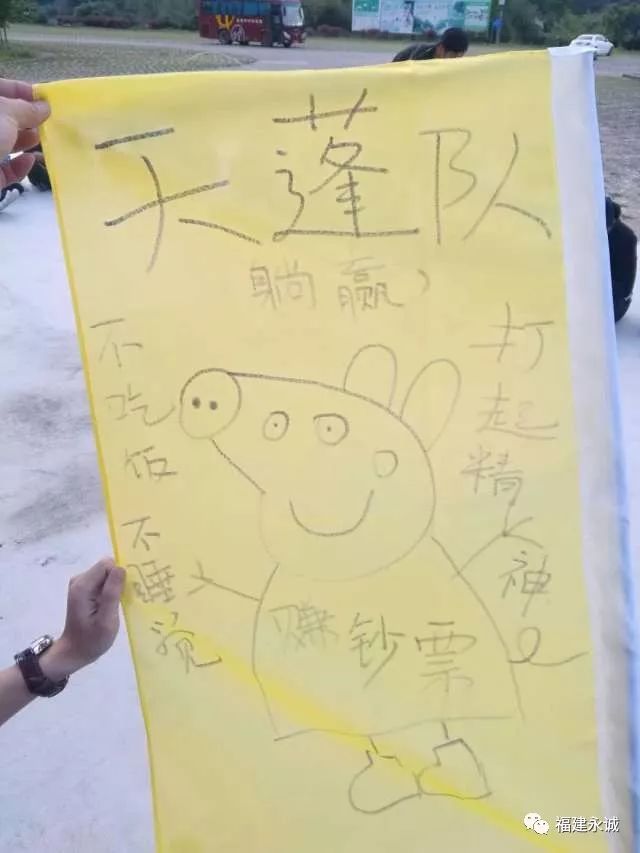 天蓬队
躺赢
不吃饭不睡觉
打起精神
赚钞票
福建永诚